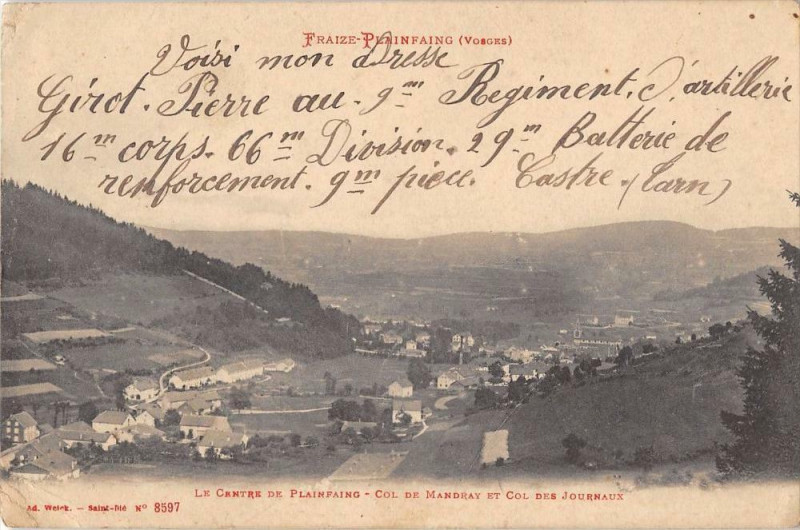 FRAIZE-PLAINFAING (VOSGES)
Voisi mon adresse
Girot. Pierre au. 9m Regiment. d'artillerie
16m corps. 66m Division. 29m Batterie de
renforcement. 9m piece. Castre. (Tarn)
LE CENTRE DE PLAINFAING - COL DE MANDRAY ET COL DES JOURNAUX
Ad. Weick. — Saint-Dié N° 8597